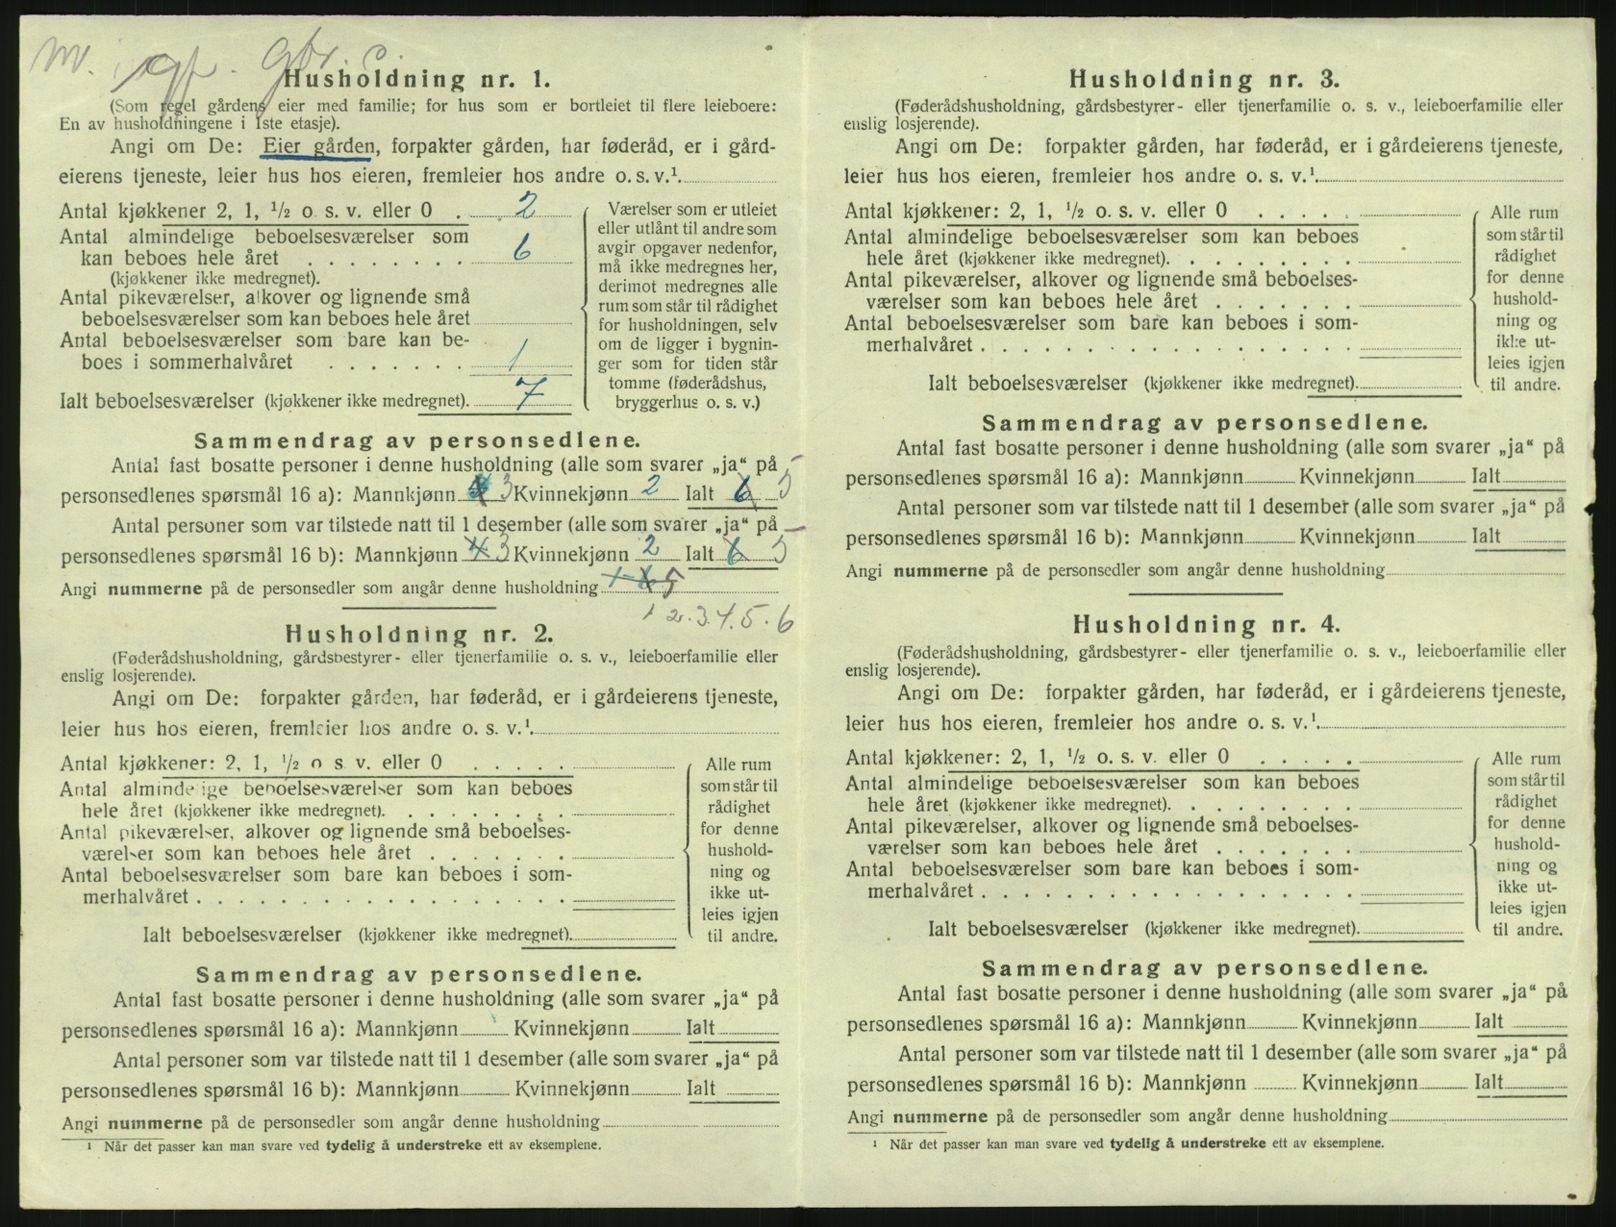 Husholdning nr. 1.
(Som regel gårdens eier med familie; for hus som er bortleiet til flere leieboere:
En av husholdningene i 1ste etasje).
Angi om De: Eier gården, forpakter gården, har føderåd, er i gård-
eierens tjeneste, leier hus hos eieren, fremleier hos andre o. s. v.¹
Antal kjøkkener 2, 1, ½ o. s. v. eller 0 . 2
Antal almindelige beboelsesværelser som
kan beboes hele året . . . . . . . . 6
(kjøkkener ikke medregnet).
Antal pikeværelser, alkover og lignende små
beboelsesværelser som kan beboes hele året
Antal beboelsesværelser som bare kan be-
boes i sommerhalvåret . . . . . . . 1
Ialt beboelsesværelser (kjøkkener ikke medregnet). 7
Værelser som er utleiet
eller utlånt til andre som
avgir opgaver nedenfor,
må ikke medregnes her,
derimot medregnes alle
rum som står til rådighet
for husholdningen, selv
om de ligger i bygnin-
ger som for tiden står
tomme (føderådshus,
bryggerhus o. s. v.)
Sammendrag av personsedlene.
Antal fast bosatte personer i denne husholdning (alle som svarer „ja“ på
personsedlenes spørsmål 16 a): Mannkjønn 3 Kvinnekjønn 2 Ialt 6 5
Antal personer som var tilstede natt til 1 desember (alle som svarer „ja“ på
personsedlenes spørsmål 16 b): Mannkjønn 4 3 Kvinnekjønn 2 Ialt 6 5
Angi nummerne på de personsedler som angår denne husholdning
1 2. 3. 4. 5. 6
Husholdning nr. 2.
(Føderådshusholdning, gårdsbestyrer- eller tjenerfamilie o. s. v., leieboerfamilie eller
enslig losjerende).
Angi om De: forpakter gården, har føderåd, er i gårdeierens tjeneste,
leier hus hos eieren, fremleier hos andre o. s. v.¹
Antal kjøkkener: 2, 1, ½ o. s. v. eller 0 . . . . .
Antal almindelige beboelsesværelser som kan beboes
hele året (kjøkkener ikke medregnet). . . . . . . . .
Antal pikeværelser, alkover og lignende små beboelses-
værelser som kan beboes hele året . . . . . . .
Antal beboelsesværelser som bare kan beboes i som-
merhalvåret . . . . . . . . . . . . . . . . . .
Ialt beboelsesværelser (kjøkkener ikke medregnet).
Alle rum
som står til
rådighet
for denne
hushold-
ning og
ikke ut-
leies igjen
til andre.
Sammendrag av personsedlene.
Antal fast bosatte personer i denne husholdning (alle som svarer „ja“ på
personsedlenes spørsmål 16 a): Mannkjønn Kvinnekjønn Ialt
Antal personer som var tilstede natt til 1 desember (alle som svarer „ja“ på
personsedlenes spørsmål 16 b): Mannkjønn Kvinnekjønn Ialt
Angi nummerne på de personsedler som angår denne husholdning
¹ Når det passer kan man svare ved tydelig å understreke ett av eksemplene.
Husholdning nr. 3.
(Føderådshusholdning, gårdsbestyrer- eller tjenerfamilie o. s. v., leieboerfamilie eller
enslig losjerende).
Angi om De: forpakter gården, har føderåd, er i gårdeierens tjeneste,
leier hus hos eieren, fremleier hos andre o. s. v.¹
Antal kjøkkener: 2, 1, ½ o. s. v. eller 0 . . . . .
Antal almindelige beboelsesværelser som kan beboes
hele året (kjøkkener ikke medregnet). . . . . . . . .
Antal pikeværelser, alkover og lignende små beboelses-
værelser som kan beboes hele året . . . . . . .
Antal beboelsesværelser som bare kan beboes i som-
merhalvåret . . . . . . . . . . . . . . . . . .
Ialt beboelsesværelser (kjøkkener ikke medregnet).
Alle rum
som står til
rådighet
for denne
hushold-
ning og
ikke ut-
leies igjen
til andre.
Sammendrag av personsedlene.
Antal fast bosatte personer i denne husholdning (alle som svarer „ja“ på
personsedlenes spørsmål 16 a): Mannkjønn Kvinnekjønn Ialt
Antal personer som var tilstede natt til 1 desember (alle som svarer „ja“ på
personsedlenes spørsmål 16 b): Mannkjønn Kvinnekjønn Ialt
Angi nummerne på de personsedler som angår denne husholdning
Husholdning nr. 4.
(Føderådshusholdning, gårdsbestyrer- eller tjenerfamilie o. s. v., leieboerfamilie eller
enslig losjerende).
Angi om De: forpakter gården, har føderåd, er i gårdeierens tjeneste,
leier hus hos eieren, fremleier hos andre o. s. v.¹
Antal kjøkkener: 2, 1, ½ o. s. v. eller 0 . . . . .
Antal almindelige beboelsesværelser som kan beboes
hele året (kjøkkener ikke medregnet). . . . . . . . .
Antal pikeværelser, alkover og lignende små beboelses-
værelser som kan beboes hele året . . . . . . .
Antal beboelsesværelser som bare kan beboes i som-
merhalvåret . . . . . . . . . . . . . . . . . .
Ialt beboelsesværelser (kjøkkener ikke medregnet).
Alle rum
som står til
rådighet
for denne
hushold-
ning og
ikke ut-
leies igjen
til andre.
Sammendrag av personsedlene.
Antal fast bosatte personer i denne husholdning (alle som svarer „ja“ på
personsedlenes spørsmål 16 a): Mannkjønn Kvinnekjønn Ialt
Antal personer som var tilstede natt til 1 desember (alle som svarer „ja“ på
personsedlenes spørsmål 16 b): Mannkjønn Kvinnekjønn Ialt
Angi nummerne på de personsedler som angår denne husholdning
¹ Når det passer kan man svare ved tydelig å understreke ett av eksemplene.